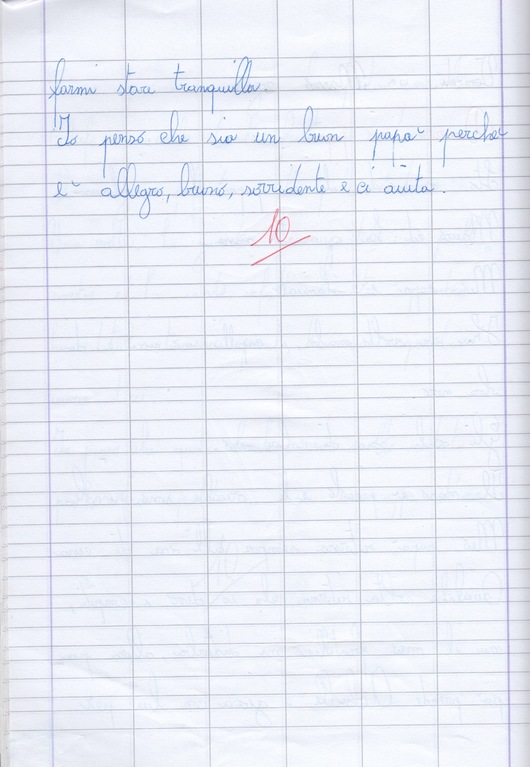 farmi stare tranquilla.
Io penso che sia un buon papà perchè
è allegro, buono, sorridente e ci aiuta.
10